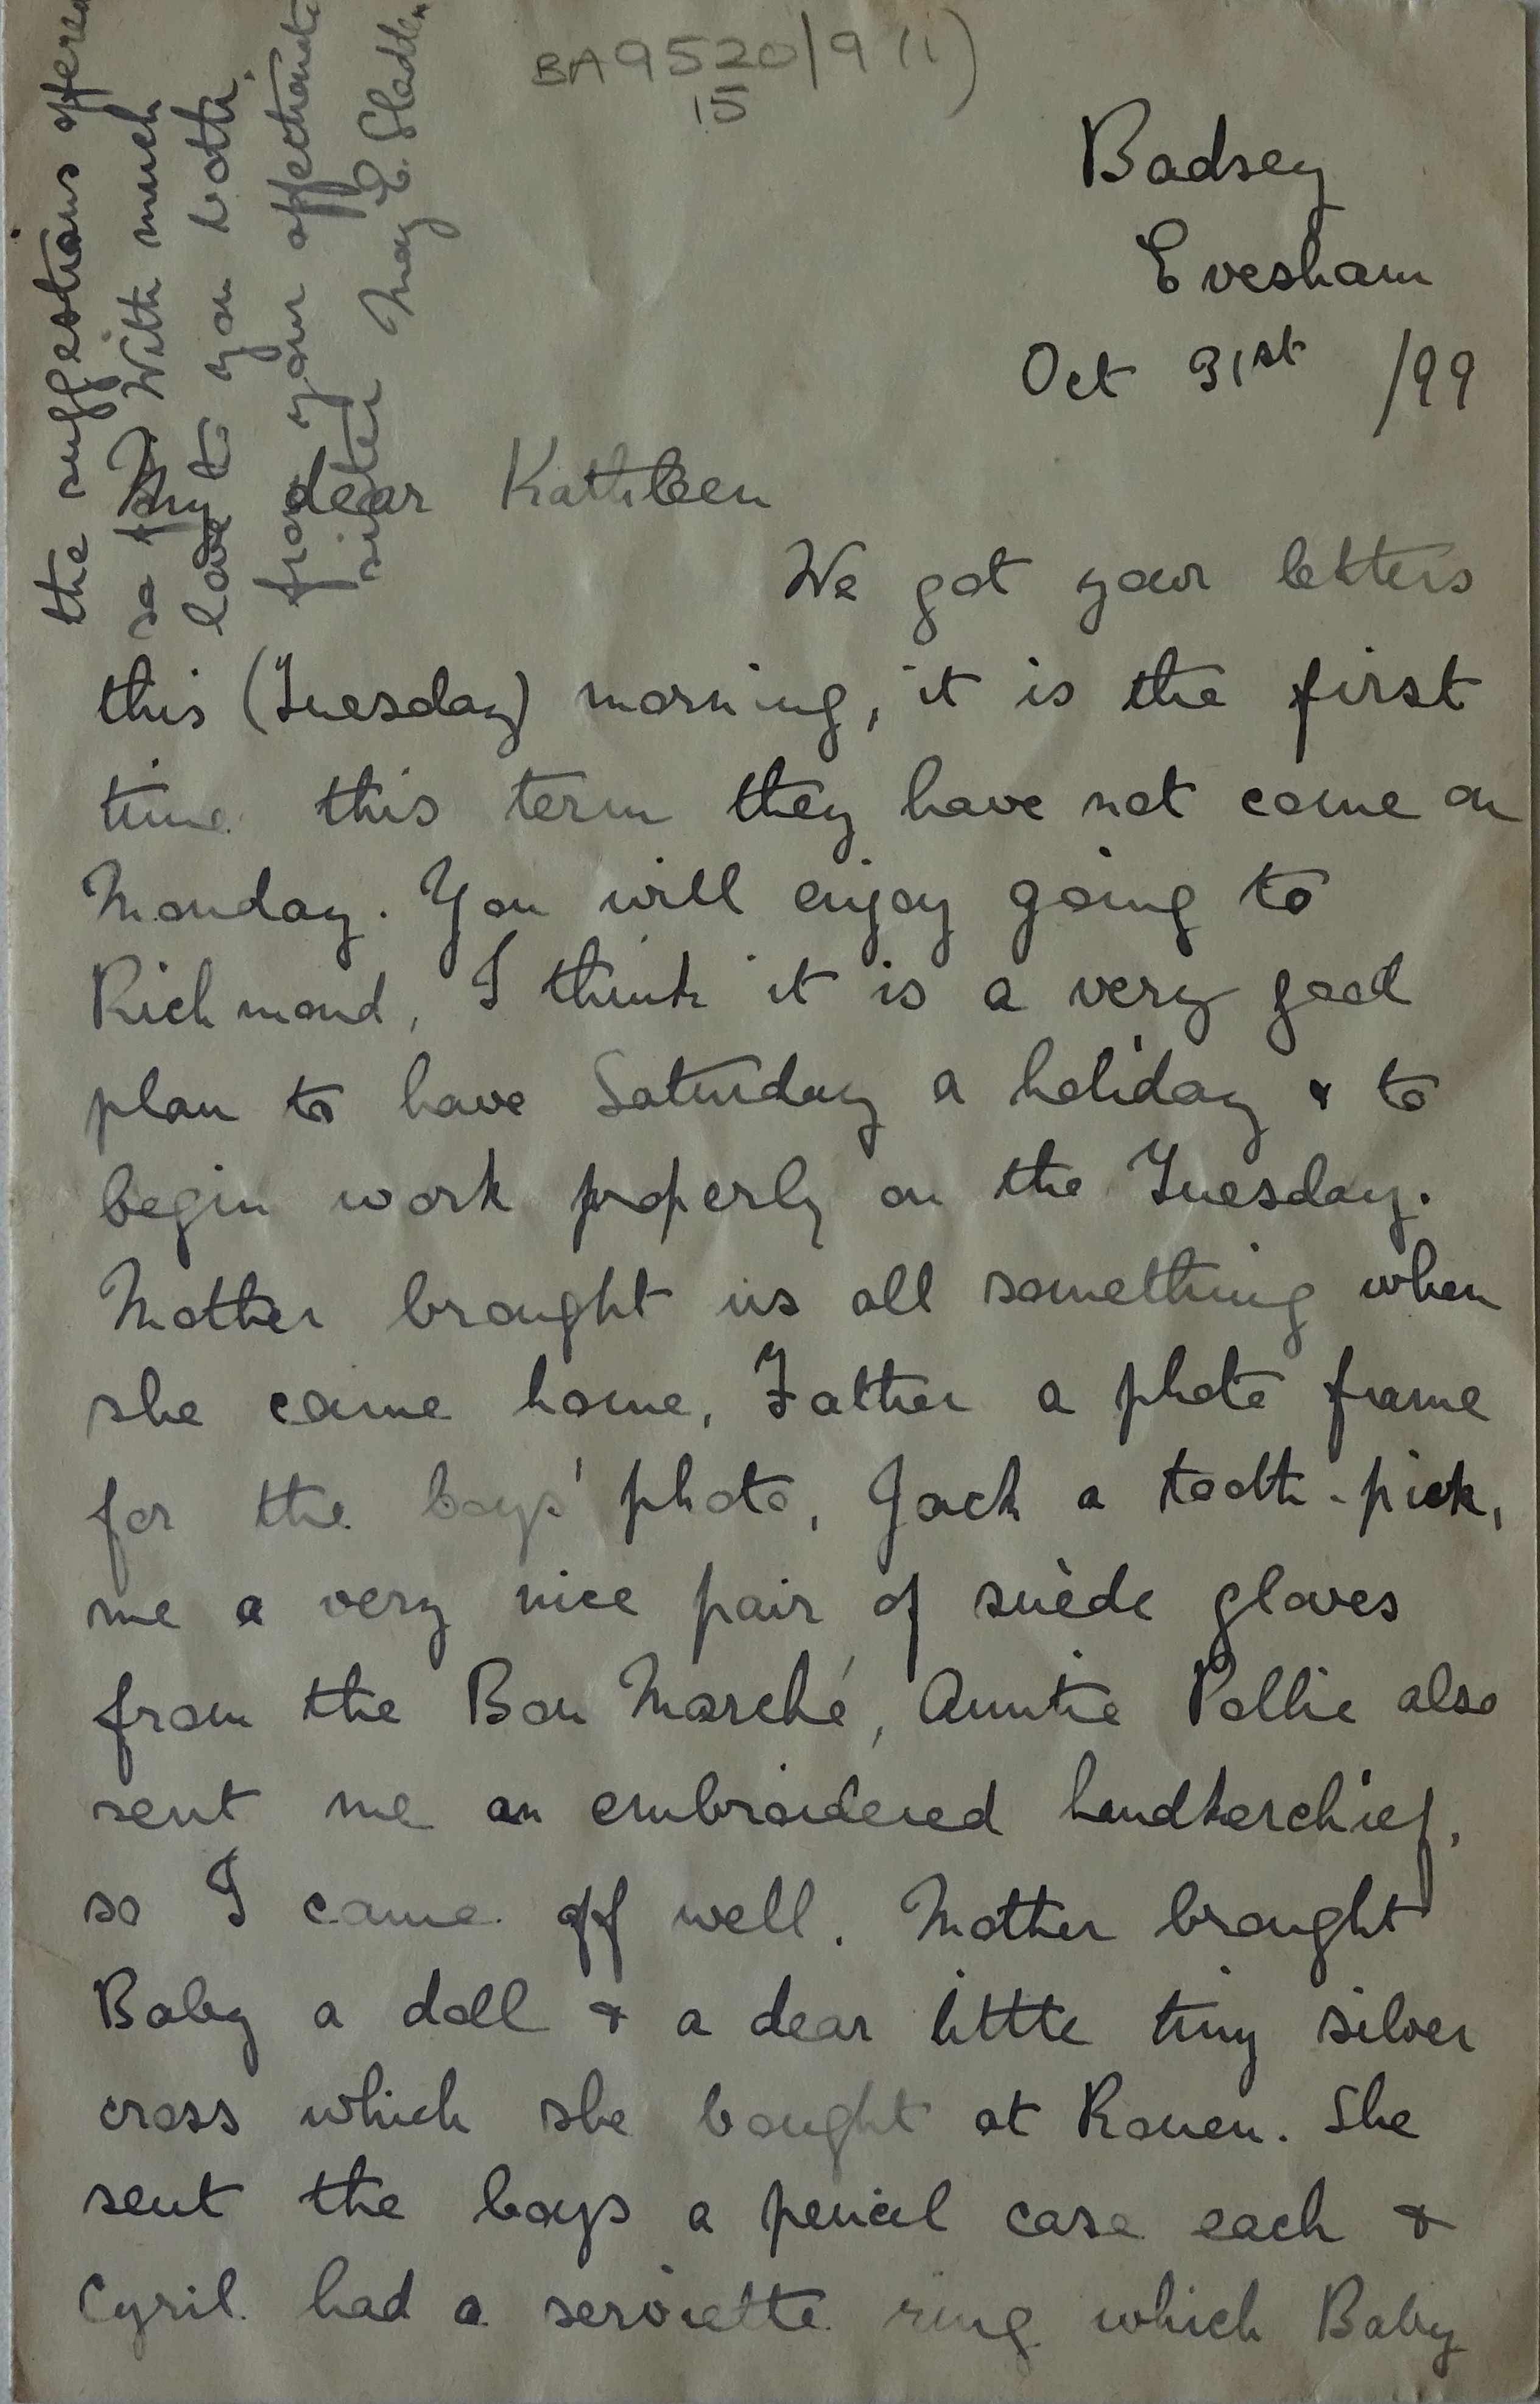 BA9520/9 (i)
15
Badsey
Evesham
Oct 31st /99
My dear Kathleen
We got your letters
this (Tuesday) morning, it is the first
time this term they have not come on
Monday. You will enjoy going to
Richmond, I think it is a very good
plan to have Saturday a holiday & to
begin work properly on the Tuesday.
Mother brought us all something when
she came home, Father a photo frame
for the boys' photo, Jack a tooth-pick,
me a very nice pair of suède gloves
from the Bon Marché, Auntie Pollie also
sent me an embroidered handkerchief,
so I came off well. Mother brought
Baby a doll & a dear little tiny silver
cross which she bought at Rouen. She
sent the boys a pencil case each &
Cyril had a serviette ring which Baby
the suggestions offered
so far. With much
love to you both.
from your affectionate
sister May E. Sladden